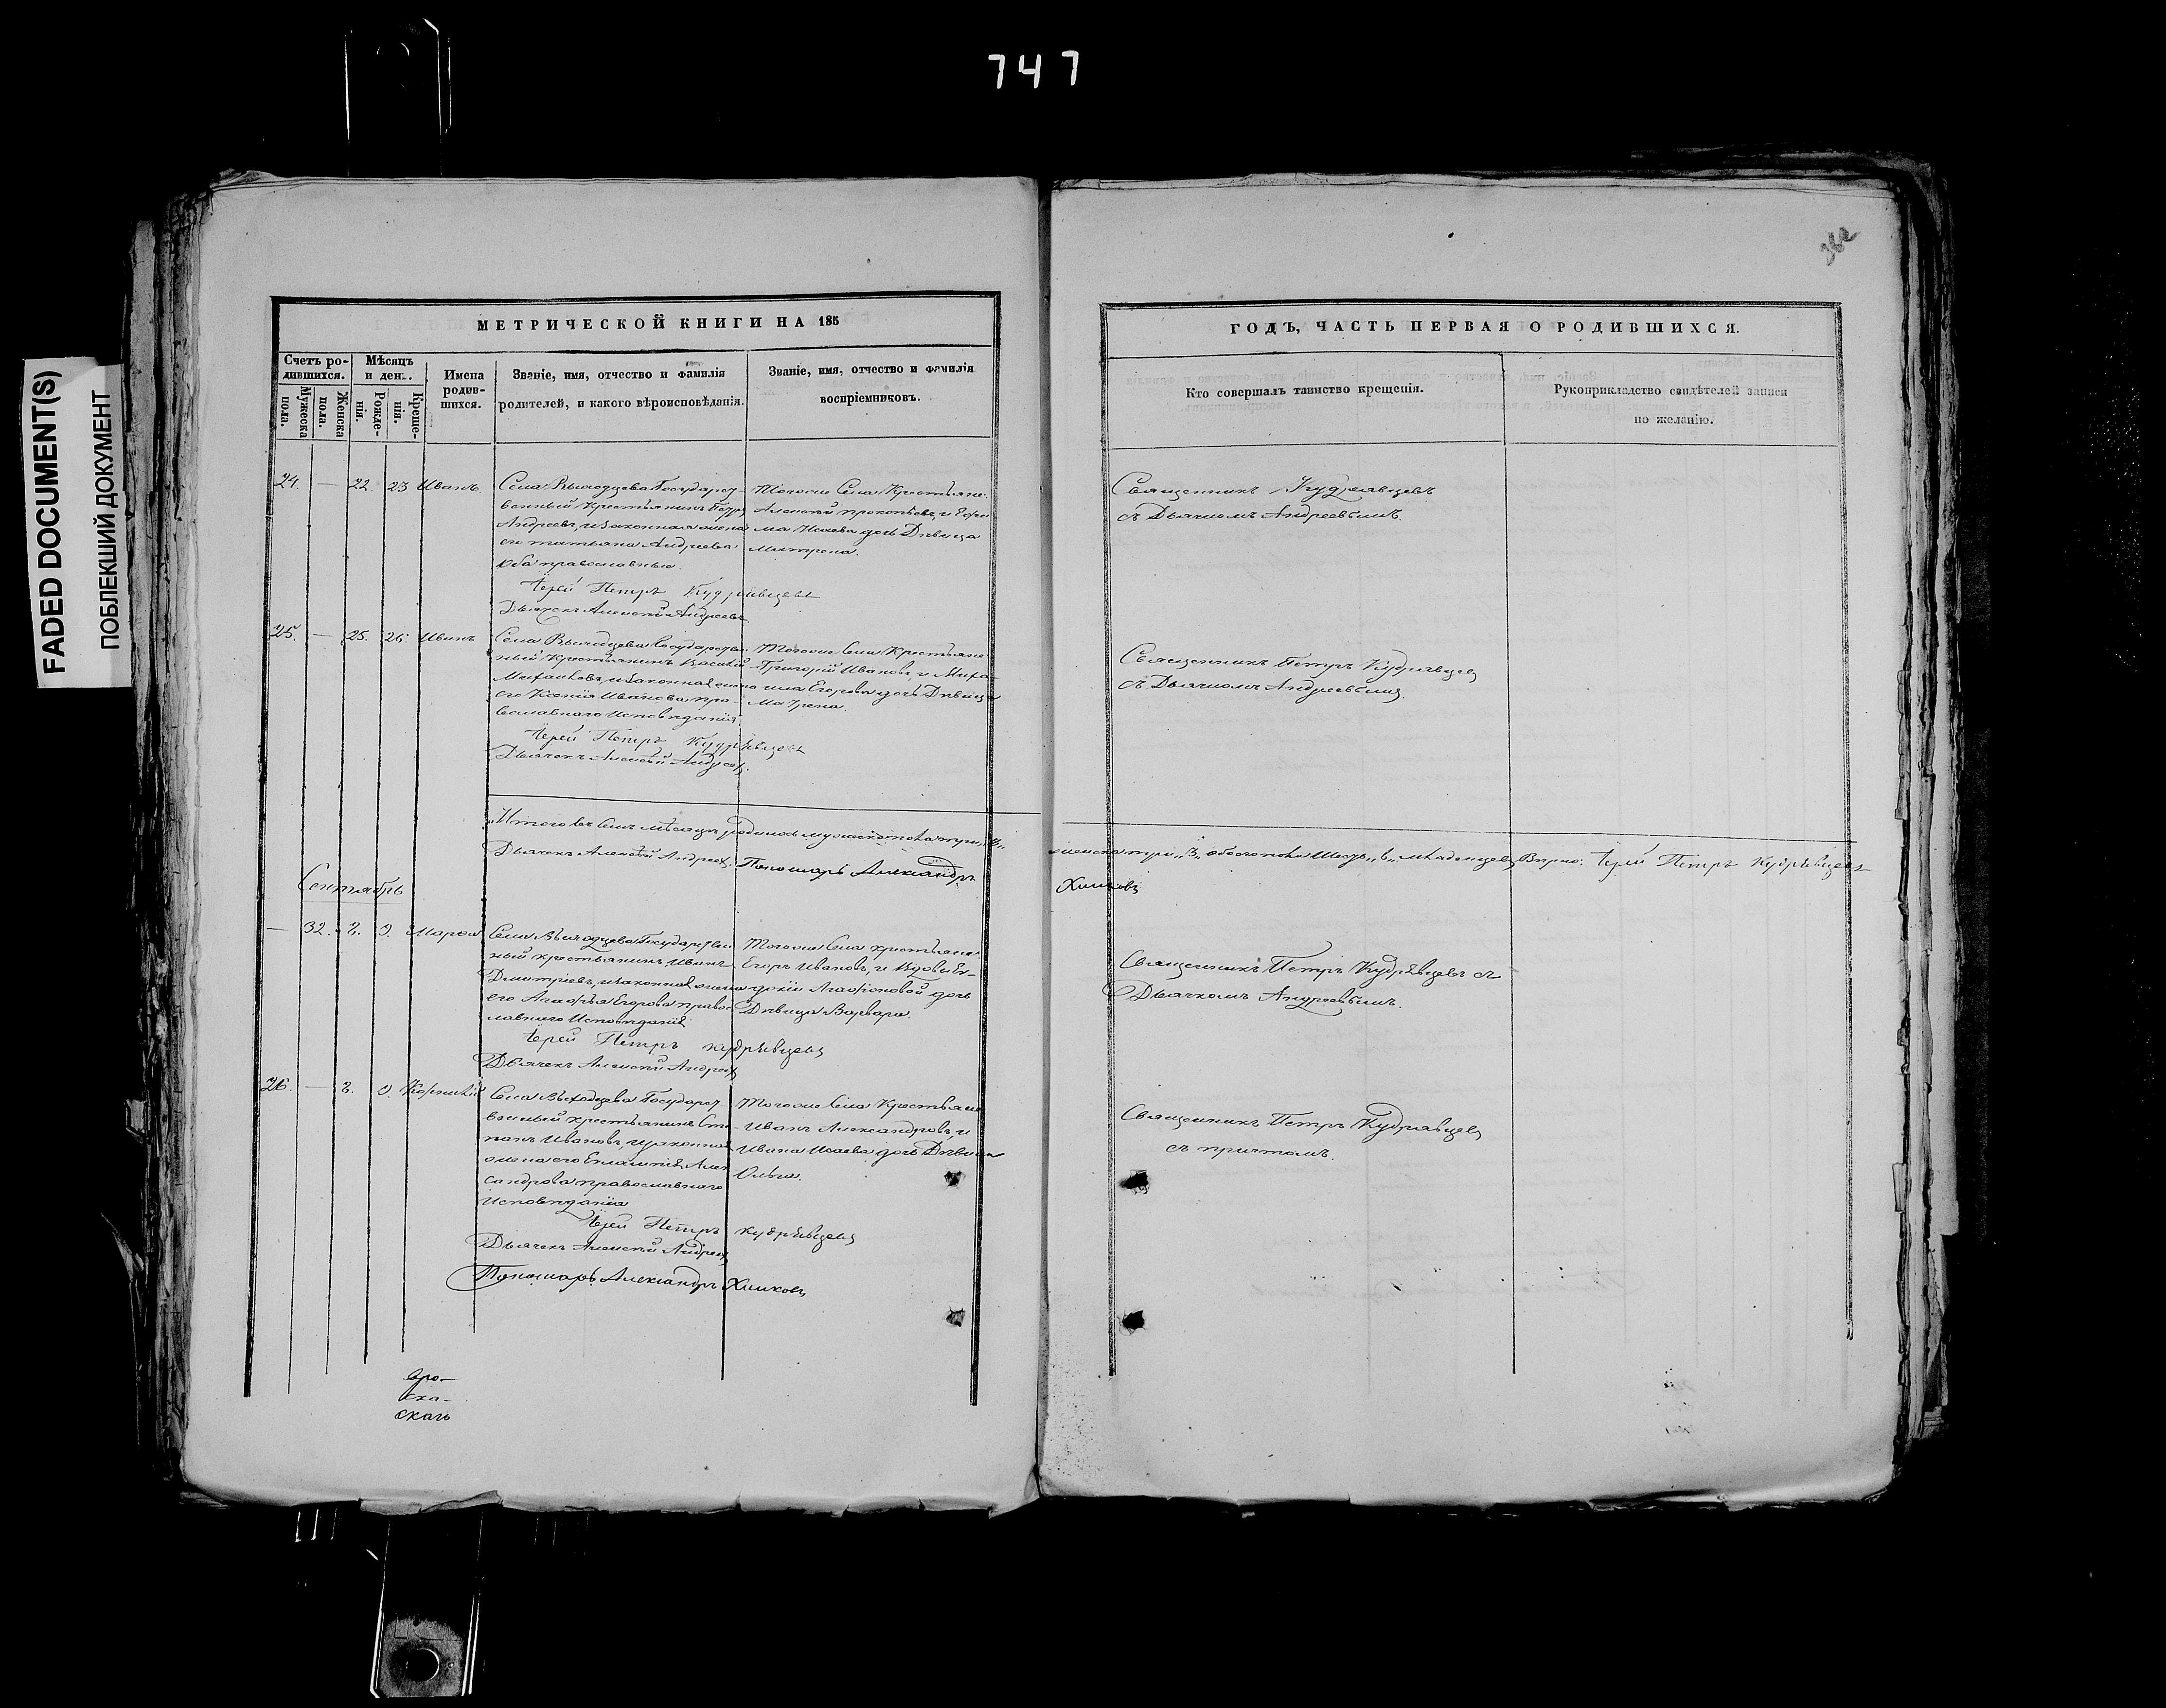 747
FADED DOCUMENT(S)
ПОБЛЕКШИЙ ДОКУМЕНТ
МЕТРИЧЕСКОЙ КНИГИ НА 185
Счетъ ро-
дившихся.
Мужеска
пола.
Женска
пола.
Мѣсяцъ
и ден
Рожде-
нія.
Креще-
нія.
Имена
родив-
шихся.
Званіе, имя, отчество и фамилія
родителей, и какого вѣроисповѣданія.
Званіе, имя, отчество и фамилія
воспріемниковъ.
24 — 22. 23 Иванъ
Села Выходцева Государст-
венный Крестьянинъ Петръ
Андреевъ, и законная жена
его Татьяна Андреева
Оба православные.
Іерей Петръ Кудрявцевъ
Дьячекъ Алексѣй Андреевъ
Тогоже Села Крестьяне.
Алексѣй Прокопьевъ, и
Исаева дочь Дѣвица
Матрена.
25. — 25. 26. Иванъ
Села Выходцева Государствен-
ный Крестьянинъ Василій
законная жена
его Ксенія Иванова, пра-
вославнаго Исповѣданія
Іерей Петръ Кудрявцевъ
Дьячекъ Алексѣй Андреевъ
Тогоже Села Крестьяне
Григорій Ивановъ, и
Егорова дочь Дѣвица
Матрена.
Итого въ Семъ мѣсяцѣ родилось мужеска пола три „3„
Дьячекъ Алексѣй Андреевъ. Пономарь Александръ
Сентябрь
— 32. 2. 3. Марѳа
Села Выходцева Государствен
ный крестьянинъ Иванъ
Дмитріевъ, и законная жена
его Агафья Егорова правос
лавнаго Исповѣданія
Іерей Петръ Кудрявцевъ
Дьячекъ Алексѣй Андреевъ
Тогоже Села крестьяне.
Егоръ Ивановъ, и Вдовы Ев-
докіи Агафоновой дочь
Дѣвица Варвара.
26. — 2. 3. Корнилій
Села Выходцева Государст
венный крестьянинъ Сте-
панъ Ивановъ, и законная
жена его Евлампія Алек
сандрова православнаго
Исповѣданія
Іерей Петръ Кудрявцевъ
Дьячекъ Алексѣй Андреевъ
Пономарь Александръ Химковъ
Тогоже Села Крестьяне
Иванъ Александровъ, и
Ивана Исаева дочь Дѣвица
Ольга.
скаго
ГОДЪ, ЧАСТЬ ПЕРВАЯ О РОДИВШИХСЯ.
Кто совершалъ таинство крещенія.
Рукоприкладство свидѣтелей записи
по желанію.
Священникъ Кудрявцевъ
съ Дьячкомъ Андреевымъ.
Священникъ Петръ Кудрявцевъ
съ Дьячкомъ Андреевымъ.
женска три „3„ обоего пола Шесть „6„ младенцевъ Вѣрно: Іерей Петръ Кудрявцевъ
Химковъ
Священникъ Петръ Кудрявцевъ съ
Дьячкомъ Андреевымъ.
Священникъ Петръ Кудрявцевъ
съ причтомъ.